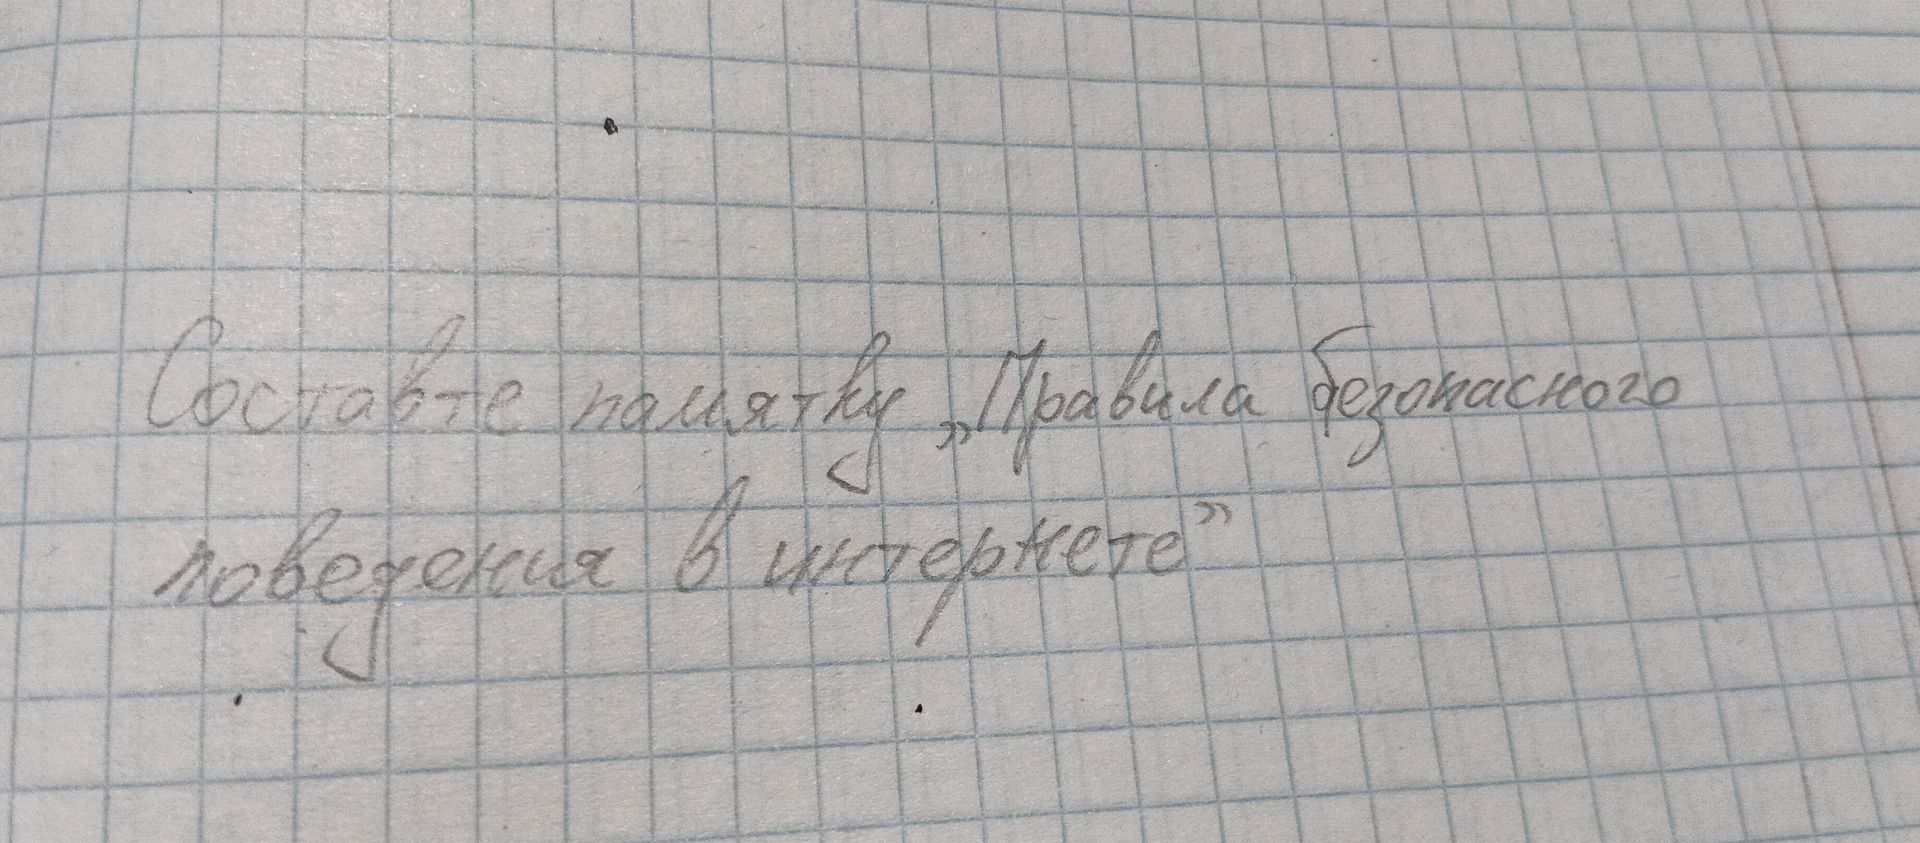 Составте памятку „Правила безопасного
поведения в интернете”